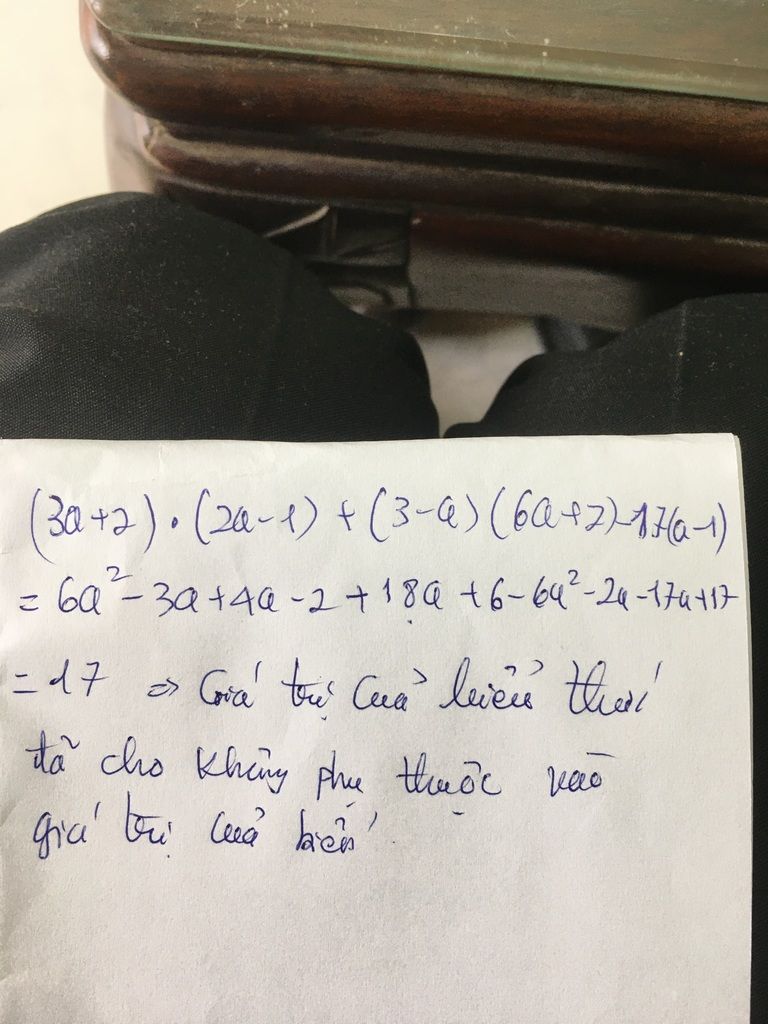 (3a+2).(2a-1)+(3-a)(6a+2)-17(a-1)
= 6a²-3a+4a-2+18a+6-6a²-2a-17a+17
= 17 => Giá trị của biểu thức
đã cho không phụ thuộc vào
giá trị của biến